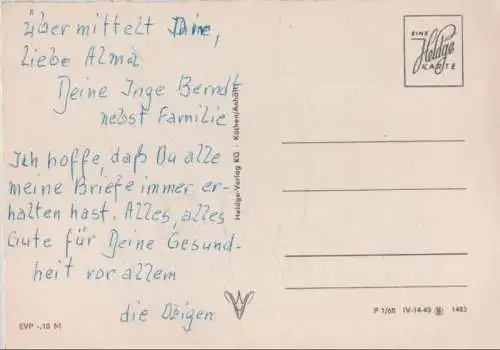 übermittelt Dir,
liebe Alma
Deine Inge Berndt
nebst Familie
Ich hoffe, daß Du alle
meine Briefe immer er-
halten hast. Alles, alles
Gute für Deine Gesund-
heit vor allem
die Obigen
EVP -,18 M
Heldge-Verlag KG · Köthen/Anhalt
EINE
Heldge
KARTE
P 1/68 IV-14-45 1483